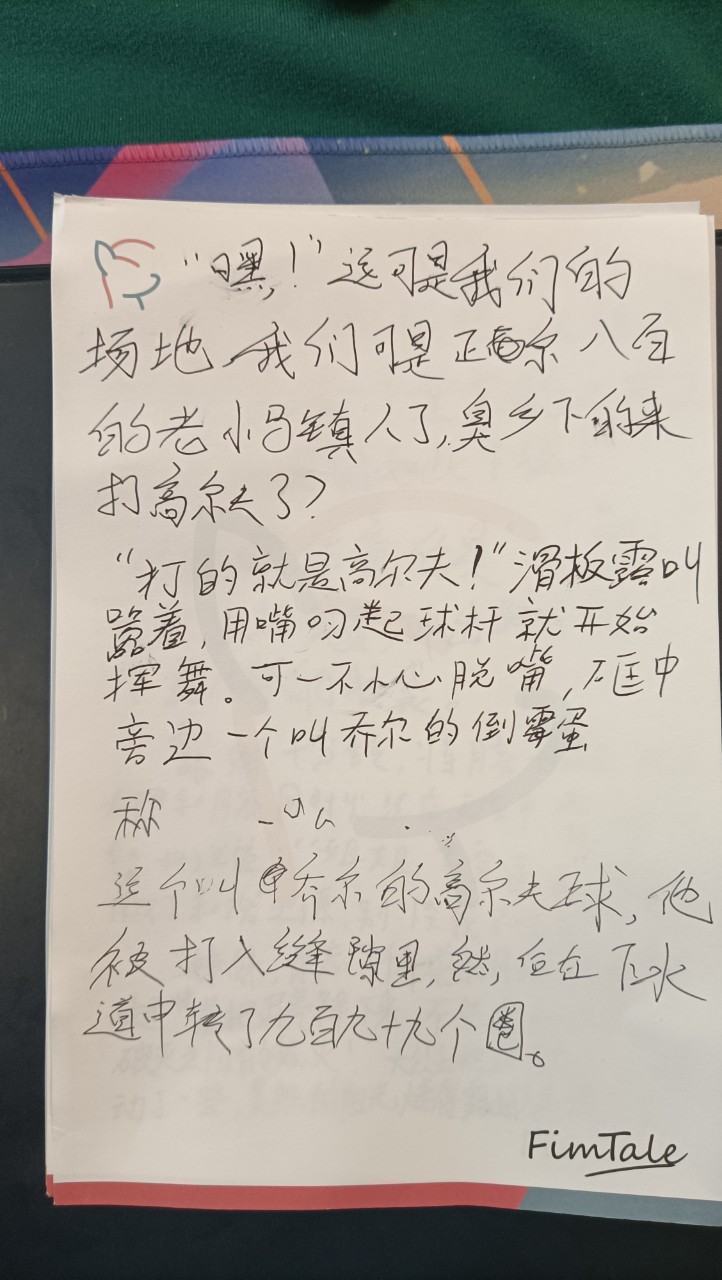 “嘿！”这可是我们的
场地，我们可是正尔八百
的老小马镇人了，臭乡下的来
打高尔夫了？
“打的就是高尔夫！”滑板露叫
嚣着，用嘴叼起球杆就开始
挥舞。可一不小心脱嘴，砸中
旁边一个叫乔尔的倒霉蛋
称
这个叫乔尔的高尔夫球，他
被打入缝隙里，然，但在下水
道中转了九百九十九个圈。
FimTale